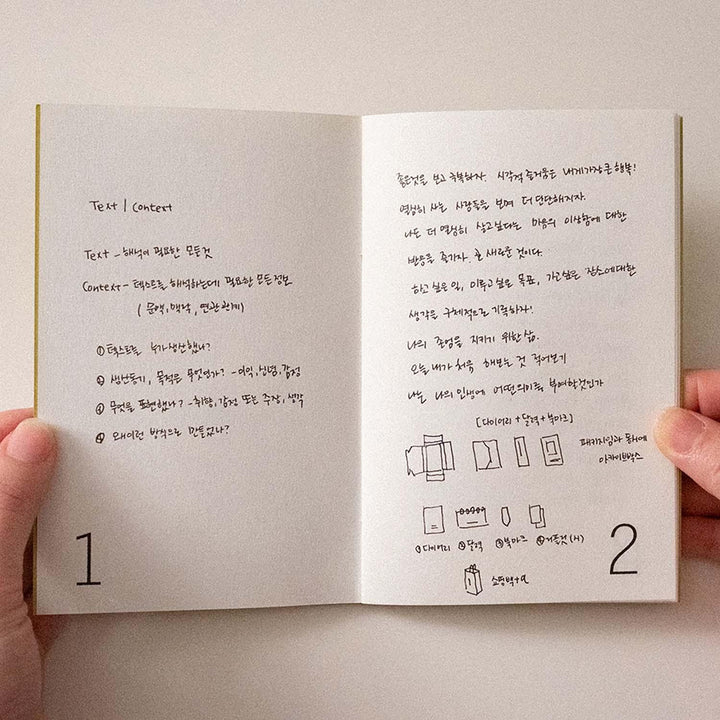 Text / Context
Text - 해석이 필요한 모든것
Context - 텍스트를 해석하는데 필요한 모든정보
( 문맥, 맥락, 연관관계)
① 텍스트를 누가생산했나?
② 생산동기, 목적은 무엇인가? - 이익, 신념, 감정
③ 무엇을 표현했나? - 취향, 감정 또는 주장, 생각
④ 왜이런 방식으로 만들었나?
1
좋은것을 보고 극복하자. 시각적 즐거움은 내게가장 큰 행복!
열심히 사는 사람들을 보며 더 단단해지자.
나는 더 열심히 살고싶다는 마음의 이상함에 대한
반응을 즐기자. 늘 새로운 것이다.
하고싶은일, 이루고싶은 목표, 가고싶은 장소에대한
생각을 구체적으로 기록하자!
나의 존엄을 지키기 위한 삶.
오늘 내가 처음 해보는 것 적어보기
나는 나의 인생에 어떤의미를 부여할것인가
[다이어리 + 달력 + 북마크]
패키지임과 동시에
아카이브박스
① 다이어리 ② 달력 ③ 북마크 ④
쇼핑백+α
2